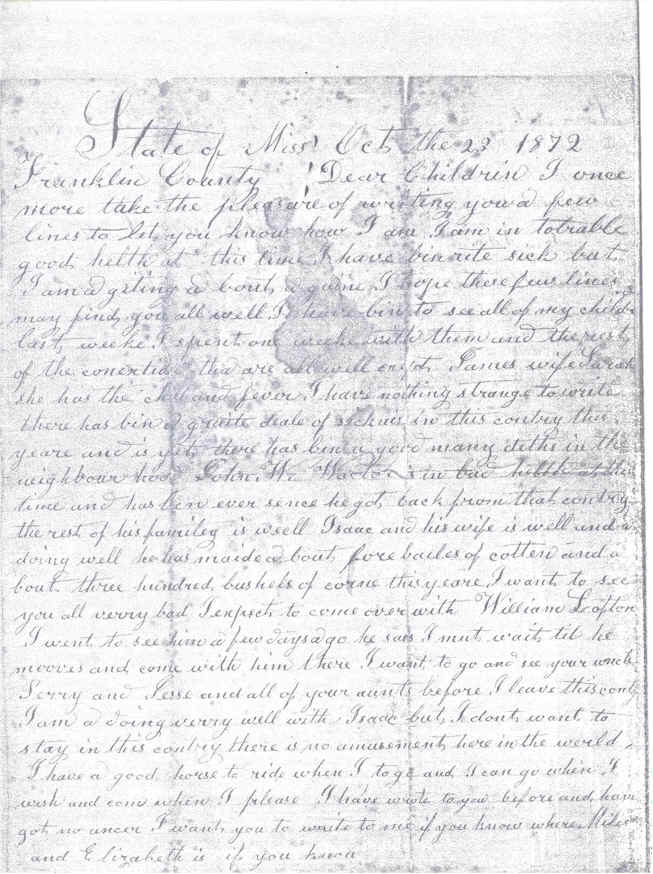 State of Miss Oct the 23 1872
Franklin County Dear Childrin I once
more take the pleasure of writing you a few
lines to let you know how I am I am in totrable
good helth at this time I have bin rite sick but
I am a giting a bout a gaine I hope these few lines
may find you all well I have bin to see all of my
last weeke I spent one weeke with them and the rest
of the conection tha are all well exept James wife Sarah
she has the chill and fevor I have nothing strange to write
there has bin a graite deale of sicknis in this contry this
yeare and is yet there has bin a good many deths in the
neighbour hood John W is in bad helth at this
time and has bin ever sence he got back from that contry
the rest of his familey is well Isaac and his wife is well and a
doing well he has maide a bout fore bailes of cotten and a
bout three hundred bushels of corne this yeare I want to see
you all verry bad I expect to come over with William Lofton
I went to see him a few days a go he sais I must wait til he
mooves and come with him there I want to go and see your uncle
Serry and Jesse and all of your aunts before I leave this
I am a doing verry well with Isaac but I dont want to
stay in this contry there is no amusement here in the world
I have a good horse to ride when I to go and I can go when I
wish and come when I please I have wrote to you before and have
got no ancer I want you to write to me if you know where
and Elizabeth is if you know